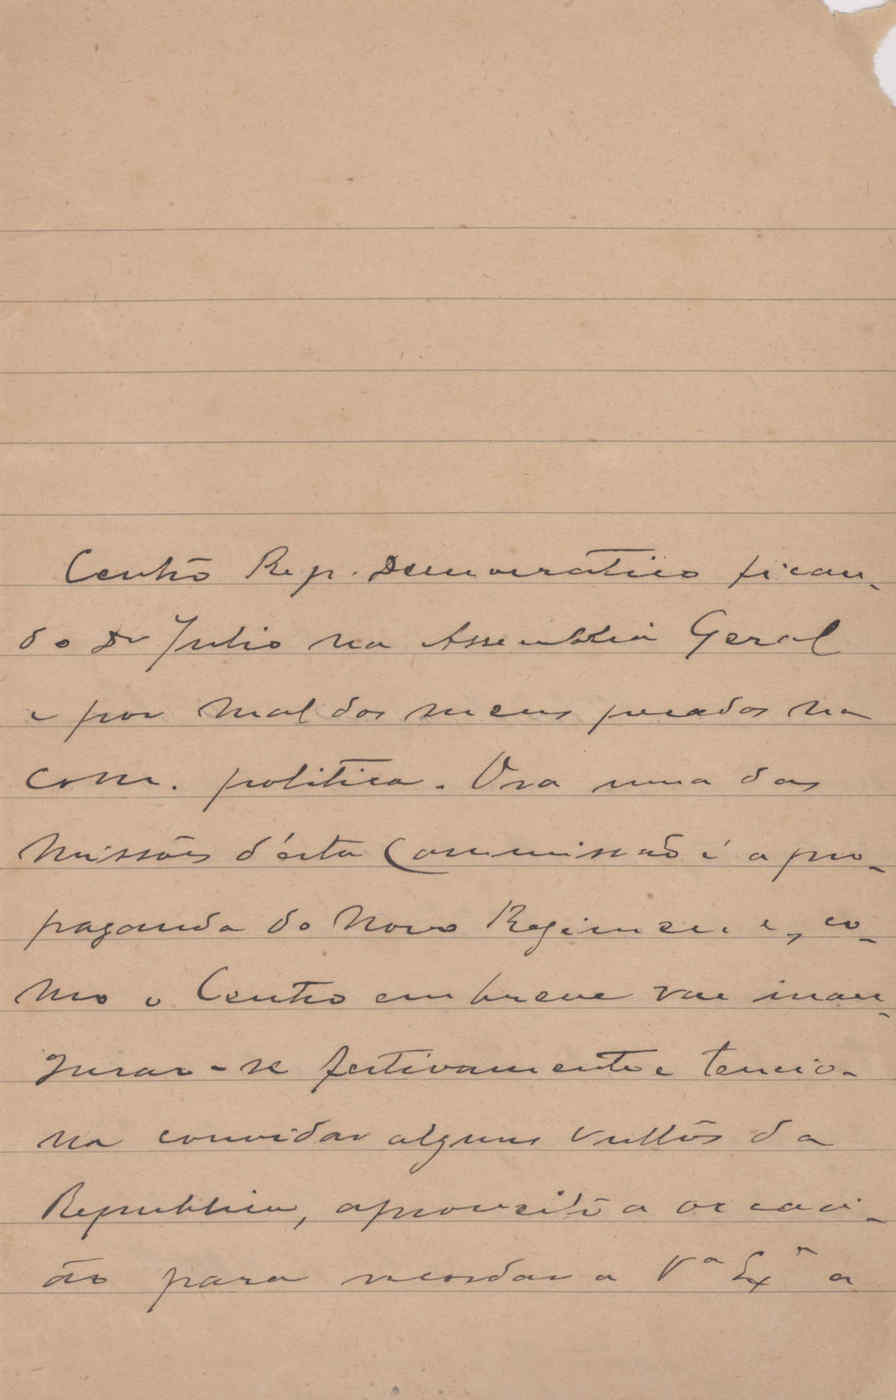 Centro Rep. Democratico fican-
do o Dr Julio na Assembleia Geral
e por mal dos meus pecados na
Com. politica. Ora uma das
missões d'ésta Commissão é a pro-
paganda do Novo Regimen. e, co-
mo o Centro em breve vae inau-
gurar-se festivamente e tencio-
na convidar alguns vultos da
Republica, aproveito a occasi-
ão para recordar a Vª Exª a